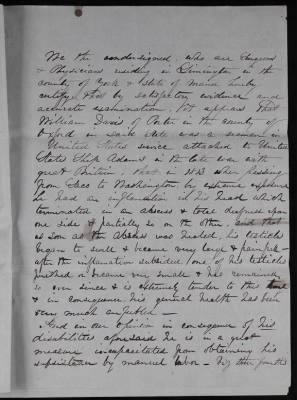 We the undersigned, who are Surgeons
& Physicians residing in Limington in the
county of York & State of Maine hereby
certify that by satisfactory evidence and
accurate examination, it appears that
William Davis of Porter in the county of
Oxford in said State was a seaman in
United States service attached to United
States Ship Adams in the late war with
great Britain - that in 1813 when passing
from Saco to Washington by extreme exposure
he had an inflamation in his head which
terminated in an abscess & total deafness upon
one side & partially so on the other, and that
as soon as the Abscess was healed, his testicles
began to swell & became very large & painful -
after the inflamation subsided one of his testicles
withered or became very small & has remained
so ever since & is extremely tender to this time
& in consequence his general health has been
very much enfeebled -
And in our opinion in consequence of his
disabilities aforesaid he is in a great
measure incapacitated from obtaining his
subsistence by manuel labor - three fourths